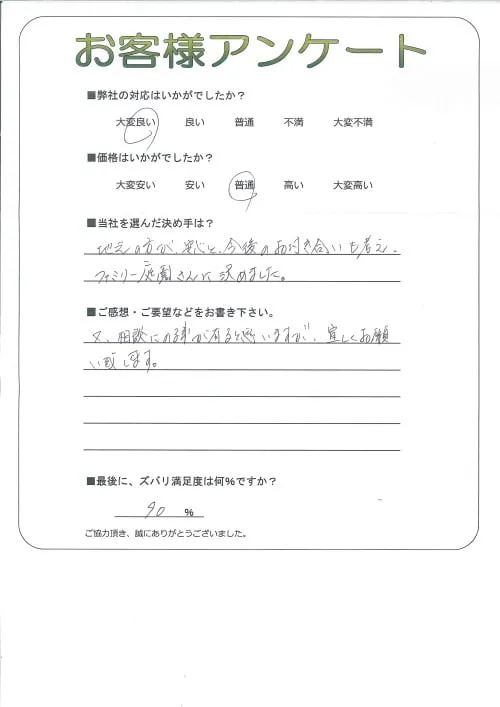 お客様アンケート
■弊社の対応はいかがでしたか？
大変良い 良い 普通 不満 大変不満
■価格はいかがでしたか？
大変安い 安い 普通 高い 大変高い
■当社を選んだ決め手は？
地元の方が、安心と、今後のお付き合いも考え、
ファミリー庭園さんに決めました。
■ご感想・ご要望などをお書き下さい。
又、相談にの事が有ると思いますが、宜しくお願
い致します。
■最後に、ズバリ満足度は何%ですか？
90 %
ご協力頂き、誠にありがとうございました。